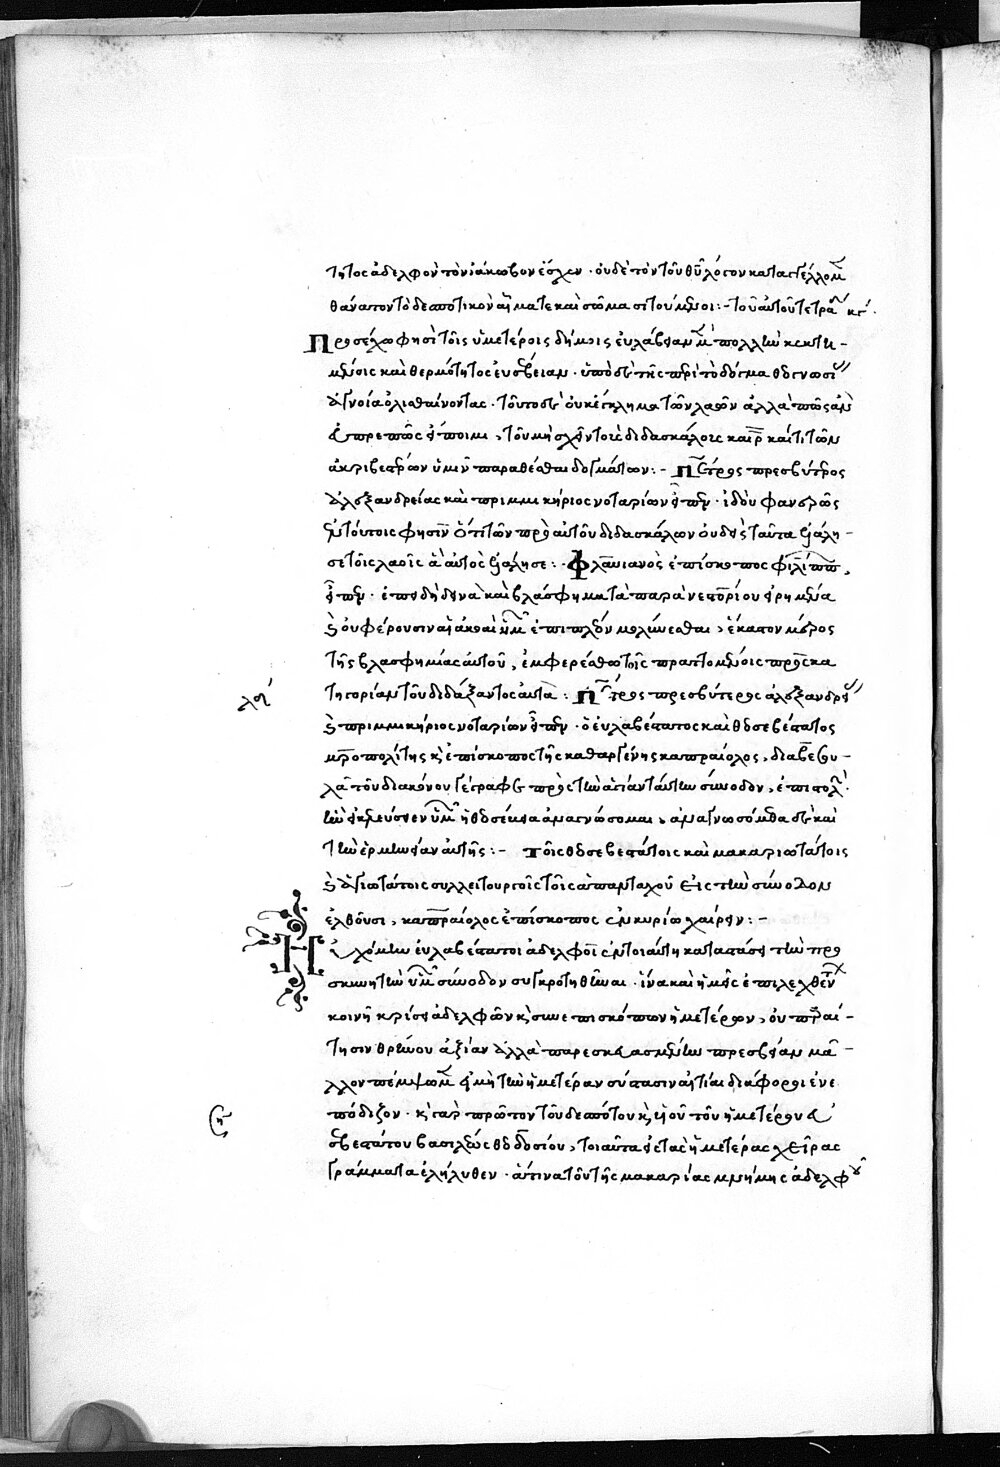 τητος ἀδελφὸν τὸν ἰάκωβον ἔσχεν · οὐδὲ τὸν τοῦ θυ λόγον καταγγέλλομ
θάνατον τὸ δεσποτικὸν αἷμά τε καὶ σῶμα σιτούμενοι :- τοῦ αὐτοῦ τετρα κγ ·
Προσέχω φησὶ τοῖς ὑμετέροις δήμοις εὐλάβειαν μ πολλὴν κεκτη-
μένοις καὶ θερμότητος εὐσέβειαν · ὑπὸ δὲ τῆς περὶ τὸ δόγμα θεογνωσί
ἀγνοία ὀλισθαίνοντας · τοῦτο δὲ οὐκ ἔγκλημα τῶν λαῶν ἀλλὰ πῶς ἂν
εὐπρεπῶς εἴποιμι, τοῦ μὴ σχεῖν τοὺς διδασκάλους καιρ καί τι τῶν
ἀκριβεστέρων ὑμῖν παραθέσθαι δογμάτων :- Πέτρος πρεσβύτερος
ἀλεξανδρείας καὶ πριμμικήριος νοταρίων εἶπεν · ἰδοὺ φανερῶς
ἐν τούτοις φησὶν ὅτι τῶν πρὸ αὐτοῦ διδασκάλων οὐδεὶς ταῦτα ἐλάλη-
σε τοῖς λαοῖς ἃ αὐτὸς ἐλάλησε :- Φλαυιανὸς ἐπίσκοπος φιλίππ,
εἶπεν · ἐπειδὴ δεινὰ καὶ βλάσφημα τὰ παρὰ νεστορίου εἰρημένα
καὶ οὐ φέρουσιν αἱ ἀκοαὶ ἡμ ἐπιπλέον μολύνεσθαι, ἕκαστον μέρος
τῆς βλασφημίας αὐτοῦ, ἐμφερέσθω τοῖς πραττομένοις πρὸς κα
τηγορίαν τοῦ διδάξαντος αὐτὰ : Πέτρος πρεσβύτερος ἀλεξανδρεί
καὶ πριμμικήριος νοταρίων εἶπεν · ὁ εὐλαβέστατος καὶ θεοσεβέστατος
μροπολίτης κὶ ἐπίσκοπος τῆς καθαργένης καπραίολος, διὰ βεσου-
λᾶ τοῦ διακόνου γέγραφε πρὸς τὴν ἁγίαν ταύτην σύνοδον, ἐπιστολ ·
ἣν εἰ κελεύσειεν ὑμ ἡ θεοσέβεια ἀναγνώσομαι, ἀναγνωσόμεθα δὲ καὶ
τὴν ἑρμηνείαν αὐτῆς :- Τοῖς θεοσεβεστάτοις καὶ μακαριωτάτοις
καὶ ἁγιωτάτοις συλλειτουργοῖς τοῖς ἁπανταχοῦ εἰς τὴν σύνοδον
ἐλθοῦσι, καπραίολος ἐπίσκοπος ἐν κυρίω χαίρειν :-
Ηὐχόμην εὐλαβέστατοι ἀδελφοὶ ἐν τοιαύτη καταστάσει τὴν προ
σκυνητὴν ὑμ σύνοδον συγκροτηθῆναι · ἵνα καὶ ἡμεῖς ἐπιλεχθέντ
κοινῆ κρίσει ἀδελφῶν κὶ συνεπισκόπων ἡμετέρων, οὐ παραί-
τησιν θρήνου ἀξίαν ἀλλὰ παρεσκευασμένην πρεσβείαν μᾶ-
λλον πέμψωμ εἰ μὴ τὴν ἡμετέραν σύστασιν αἰτίαι διάφοροι ἐνε
πόδιζον · κὶ γὰρ πρῶτον τοῦ δεσπότου κὶ υἱοῦ τοῦ ἡμετέρου εὐ
σεβεστάτου βασιλέως θεοδοσίου, τοιαῦτα εἰς τὰς ἡμετέρας χεῖρας
γράμματα ἐλήλυθεν · ἅτινα τοῦ τῆς μακαρίας μνήμης ἀδελφοῦ